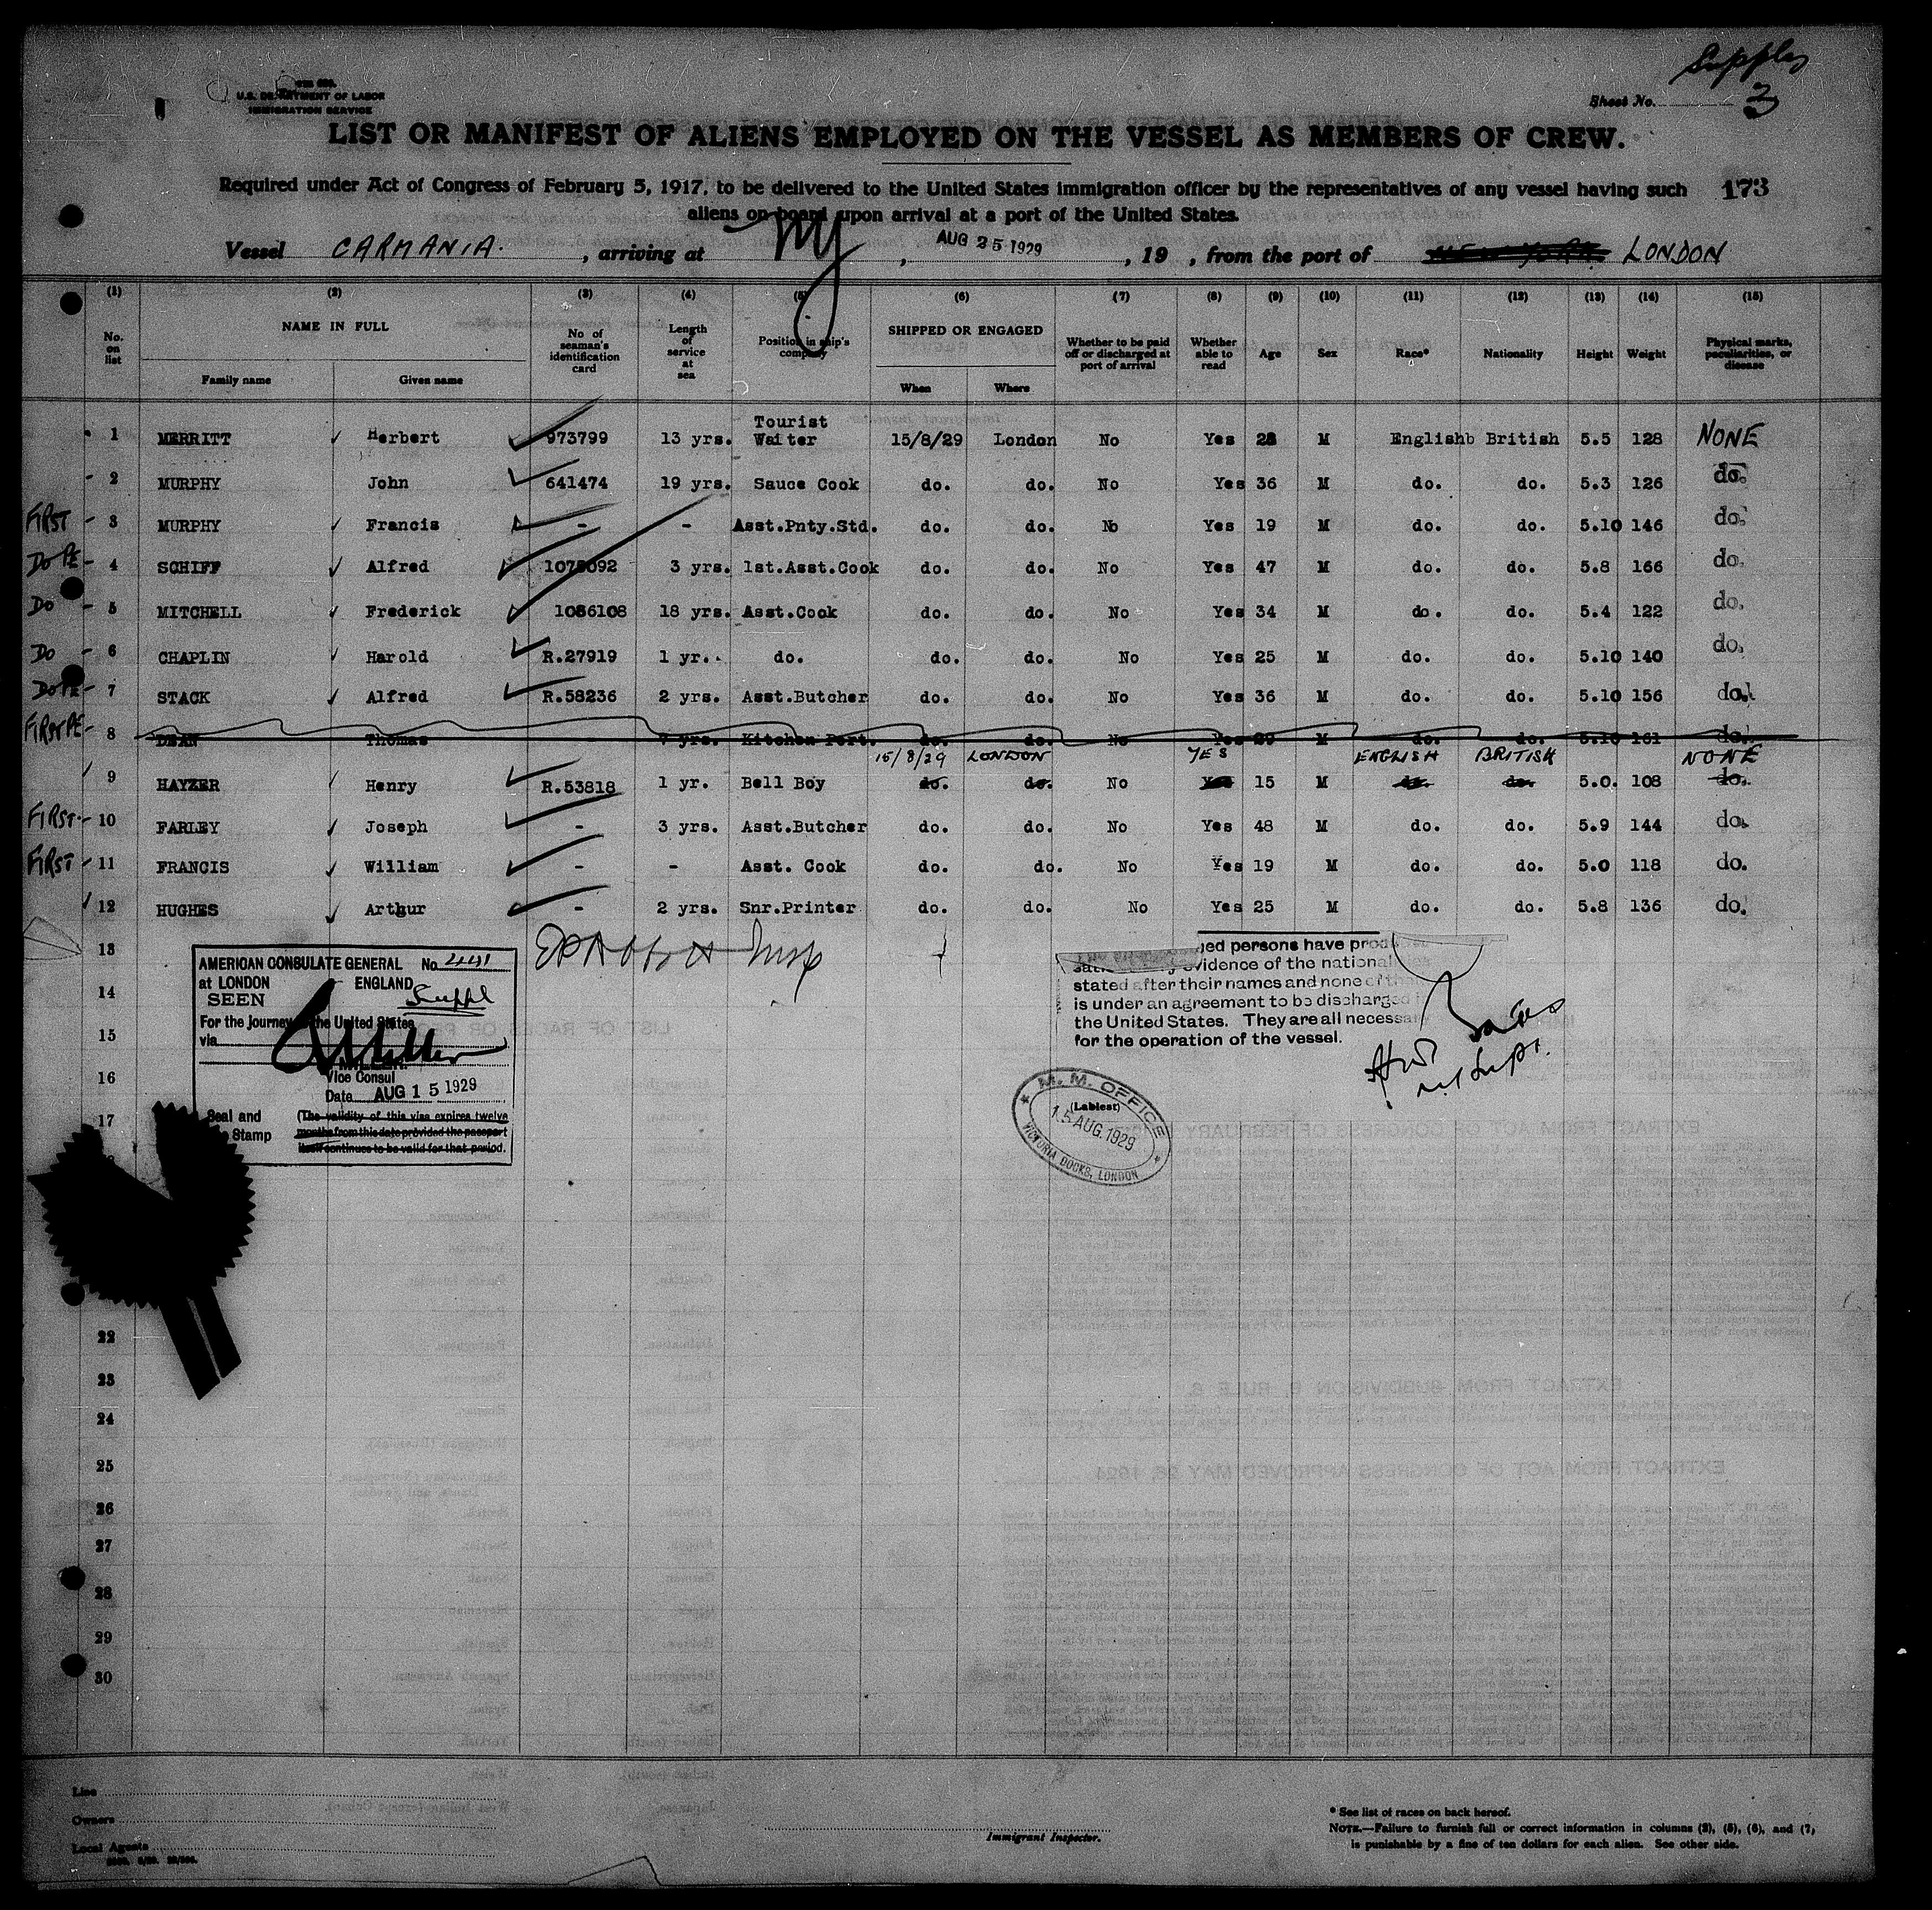 Supply
U.S. DEPARTMENT OF LABOR
IMMIGRATION SERVICE
Sheet No. 3
LIST OR MANIFEST OF ALIENS EMPLOYED ON THE VESSEL AS MEMBERS OF CREW.
Required under Act of Congress of February 5, 1917, to be delivered to the United States immigration officer by the representatives of any vessel having such 173
aliens on board upon arrival at a port of the United States.
Vessel CARMANIA. , arriving at NY , AUG 25 1929 , 19 , from the port of NEW YORK LONDON
(1) (2) (3) (4) (5) (6) (7) (8) (9) (10) (11) (12) (13) (14) (15)
No. on list NAME IN FULL Family name Given name No of seaman's identification card Length of service at sea Position in ship's company SHIPPED OR ENGAGED When Where Whether to be paid off or discharged at port of arrival Whether able to read Age Sex Race* Nationality Height Weight Physical marks, peculiarities, or disease
1 MERRITT Herbert 973799 13 yrs. Tourist Waiter 15/8/29 London No Yes 28 M Englishb British 5.5 128 NONE
2 MURPHY John 641474 19 yrs. Sauce Cook do. do. No Yes 36 M do. do. 5.3 126 do.
FIRST 3 MURPHY Francis - - Asst.Pnty.Std. do. do. No Yes 19 M do. do. 5.10 146 do.
Do PE 4 SCHIFF Alfred 1078092 3 yrs. 1st.Asst.Cook do. do. No Yes 47 M do. do. 5.8 166 do.
Do 5 MITCHELL Frederick 1086108 18 yrs. Asst.Cook do. do. No Yes 34 M do. do. 5.4 122 do.
Do 6 CHAPLIN Harold R.27919 1 yr. do. do. do. No Yes 25 M do. do. 5.10 140 do.
Do PE 7 STACK Alfred R.58236 2 yrs. Asst.Butcher do. do. No Yes 36 M do. do. 5.10 156 do.
FIRST PE 8 DEAN Thomas 7 yrs. Kitchen Port. do. do. No Yes 29 M do. do. 5.10 161 do.
15/8/29 LONDON YES ENGLISH BRITISH NONE
9 HAYZER Henry R.53818 1 yr. Bell Boy do. do. No Yes 15 M do. do. 5.0. 108 do.
FIRST 10 FARLEY Joseph - 3 yrs. Asst.Butcher do. do. No Yes 48 M do. do. 5.9 144 do.
FIRST 11 FRANCIS William - - Asst. Cook do. do. No Yes 19 M do. do. 5.0 118 do.
12 HUGHES Arthur - 2 yrs. Snr.Printer do. do. No Yes 25 M do. do. 5.8 136 do.
13
14
15
16
17
22
23
24
25
26
27
28
29
30
AMERICAN CONSULATE GENERAL No.
at LONDON ENGLAND
SEEN Suppl
For the journey to the United States
via
MILLER.
Vice Consul
Date AUG 15 1929
Seal and Stamp
(The validity of this visa expires twelve
months from this date provided the passport
itself continues to be valid for that period.
Insp
ged persons have produced
evidence of the national
stated after their names and none of them
is under an agreement to be discharged
the United States. They are all necessary
for the operation of the vessel.
M. M. OFFICE
15 AUG.1929
VICTORIA DOCKS, LONDON
Line
Owners
Local Agents
Immigrant Inspector.
* See list of races on back hereof.
NOTE.—Failure to furnish full or correct information in columns (2), (5), (6), and (7,
is punishable by a fine of ten dollars for each alien. See other side.